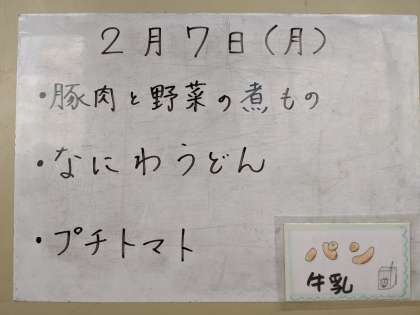 ２月７日(月)
・豚肉と野菜の煮もの
・なにわうどん
・プチトマト
パン
牛乳